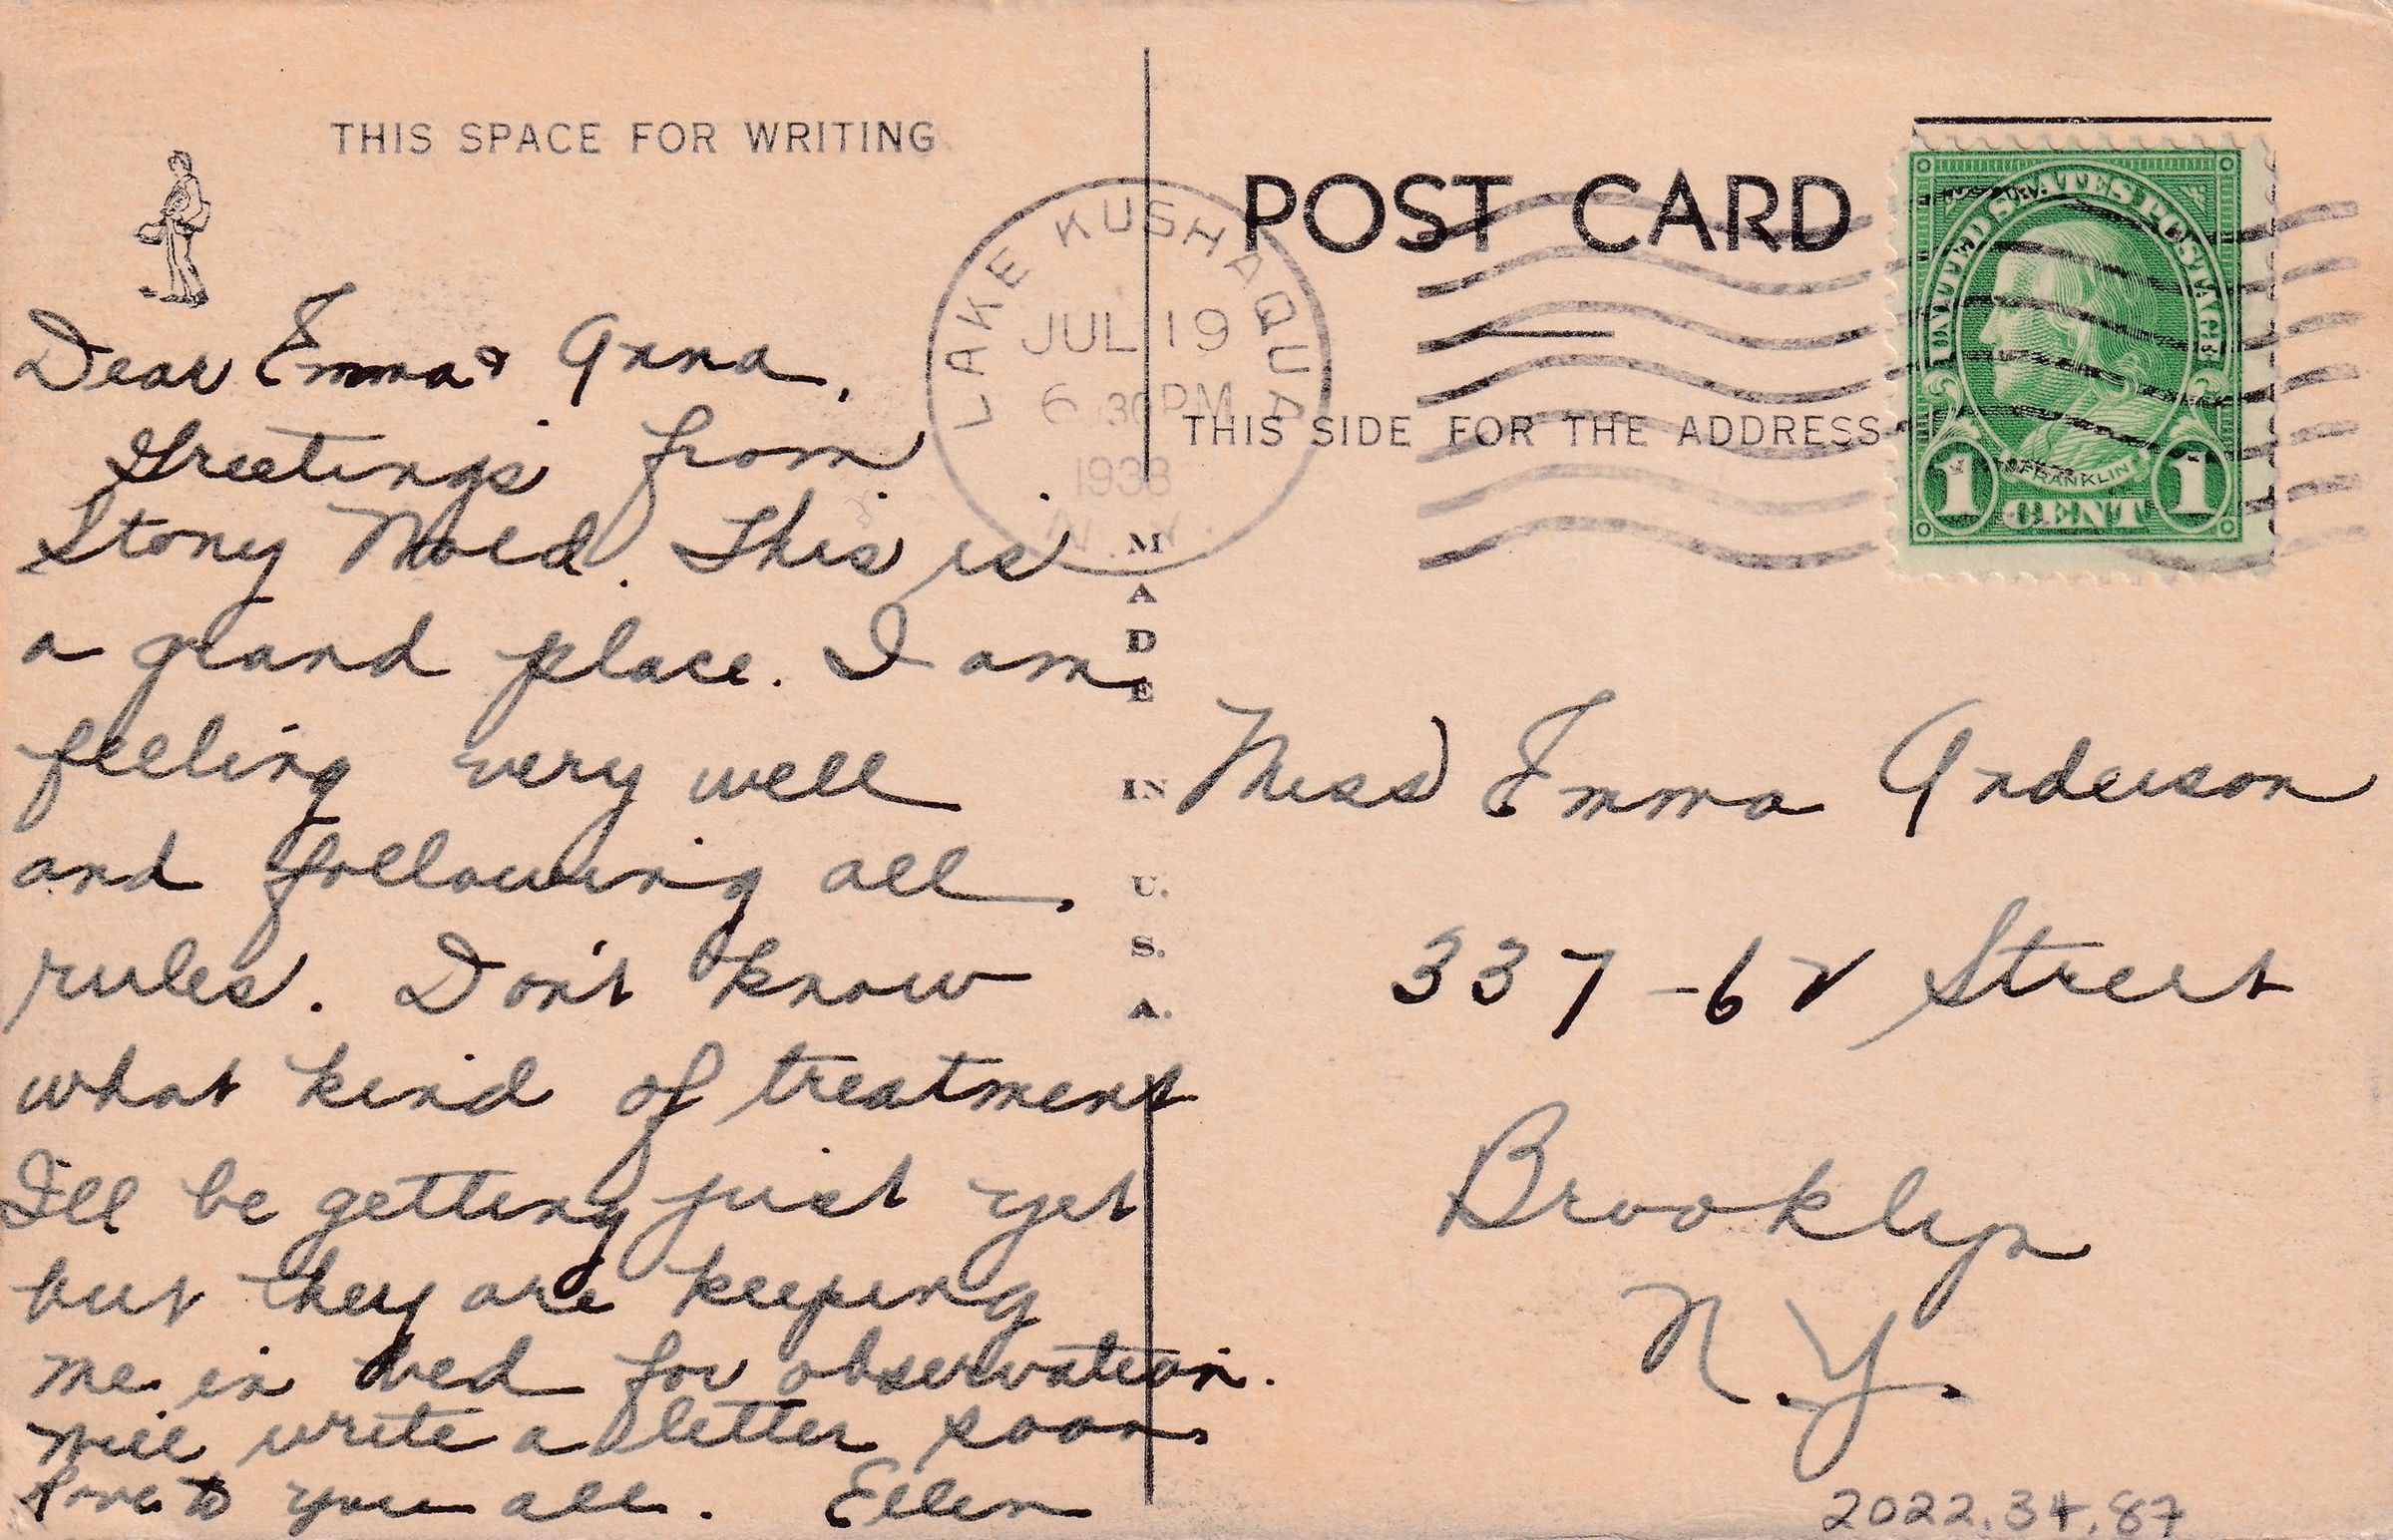 THIS SPACE FOR WRITING
Dear Emma & Anna,
Greetings from
Stony Wold. This is
a grand place. I am
feeling very well
and following all
rules. Don't know
what kind of treatment
I'll be getting just yet
but they are keeping
me in bed for observation.
Will write a letter soon.
Love to you all. Ellen
LAKE KUSHAQUA
JUL 19
6 30 PM
1938
N.Y.
MADE IN U.S.A.
POST CARD
THIS SIDE FOR THE ADDRESS
UNITED STATES POSTAGE
FRANKLIN
1 CENT 1
Miss Emma Anderson
337-62 Street
Brooklyn
N.Y.
2022.34.87